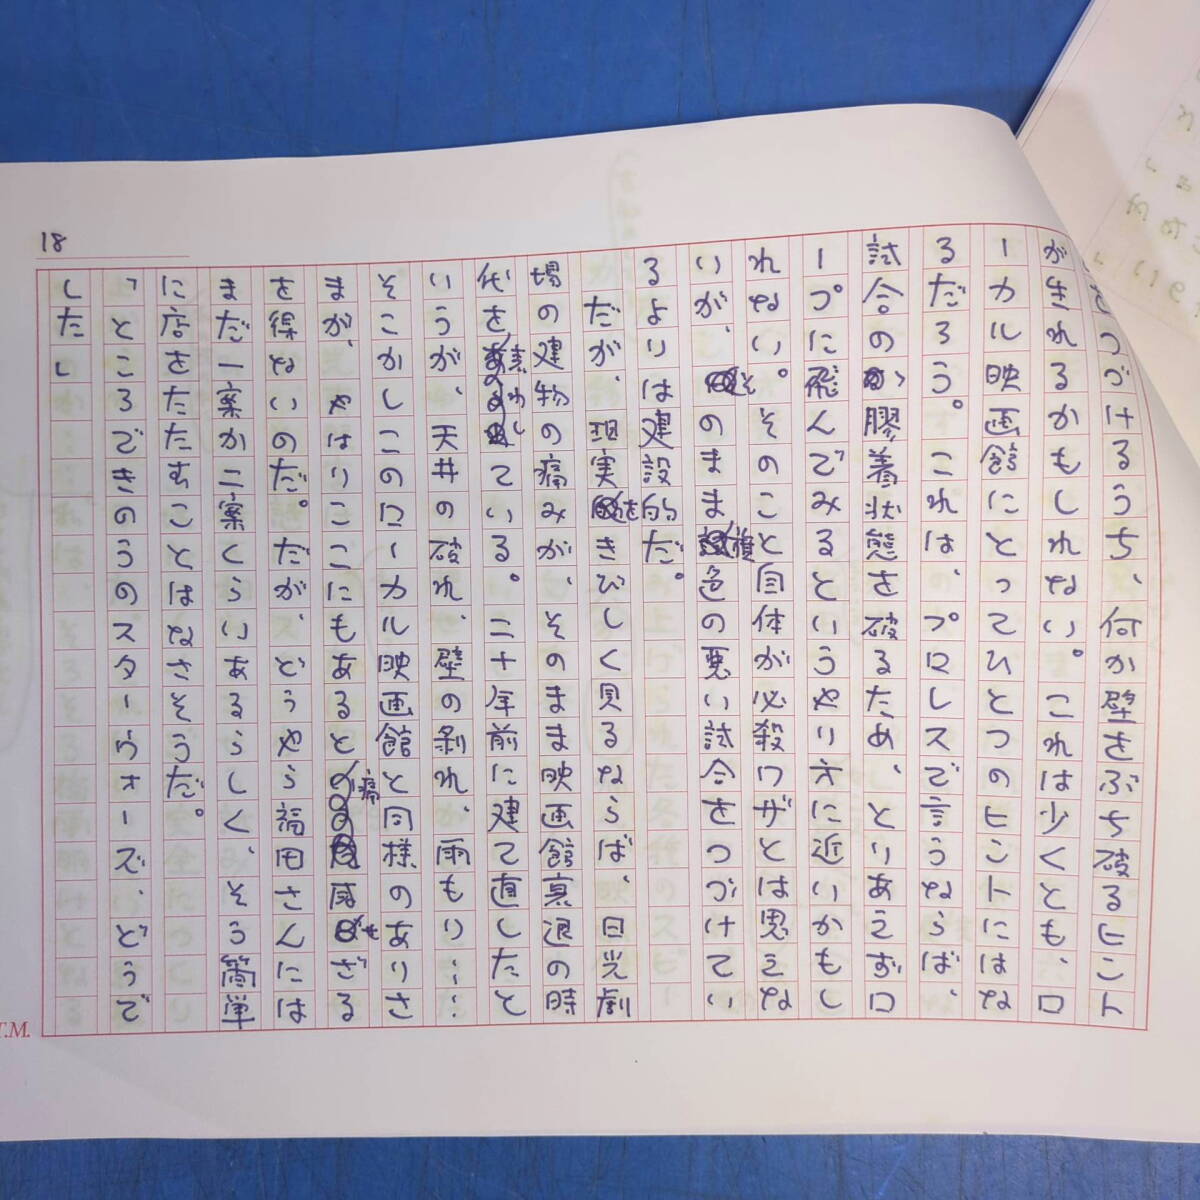 をつづけるうち、何か壁をぶち破るヒント
が生れるかもしれない。これは少くとも、ロ
ーカル映画館にとってひとつのヒントにはな
るだろう。これは、プロレスで言うならば、
試合の膠着状態を破るため、とりあえずロ
ープに飛んでみるというやり方に近いかもし
れない。そのこと自体が必殺ワザとは思えな
いが、そのまま顔色の悪い試合をつづけてい
るよりは建設的だ。
だが、現実をきびしく見るならば、日光劇
場の建物の痛みが、そのまま映画館衰退の時
代を表わしている。二十年前に建て直したと
いうが、天井の破れ、壁の剥れ、雨もり……
そこかしこのローカル映画館と同様のありさ
まが、やはりここにもあると痛感せざる
を得ないのだ。だが、どうやら福田さんには
まだ一案か二案くらいあるらしく、そう簡単
に店をたたむことはなさそうだ。
「ところできのうのスターウォーズ、どうで
した」
18
T.M.